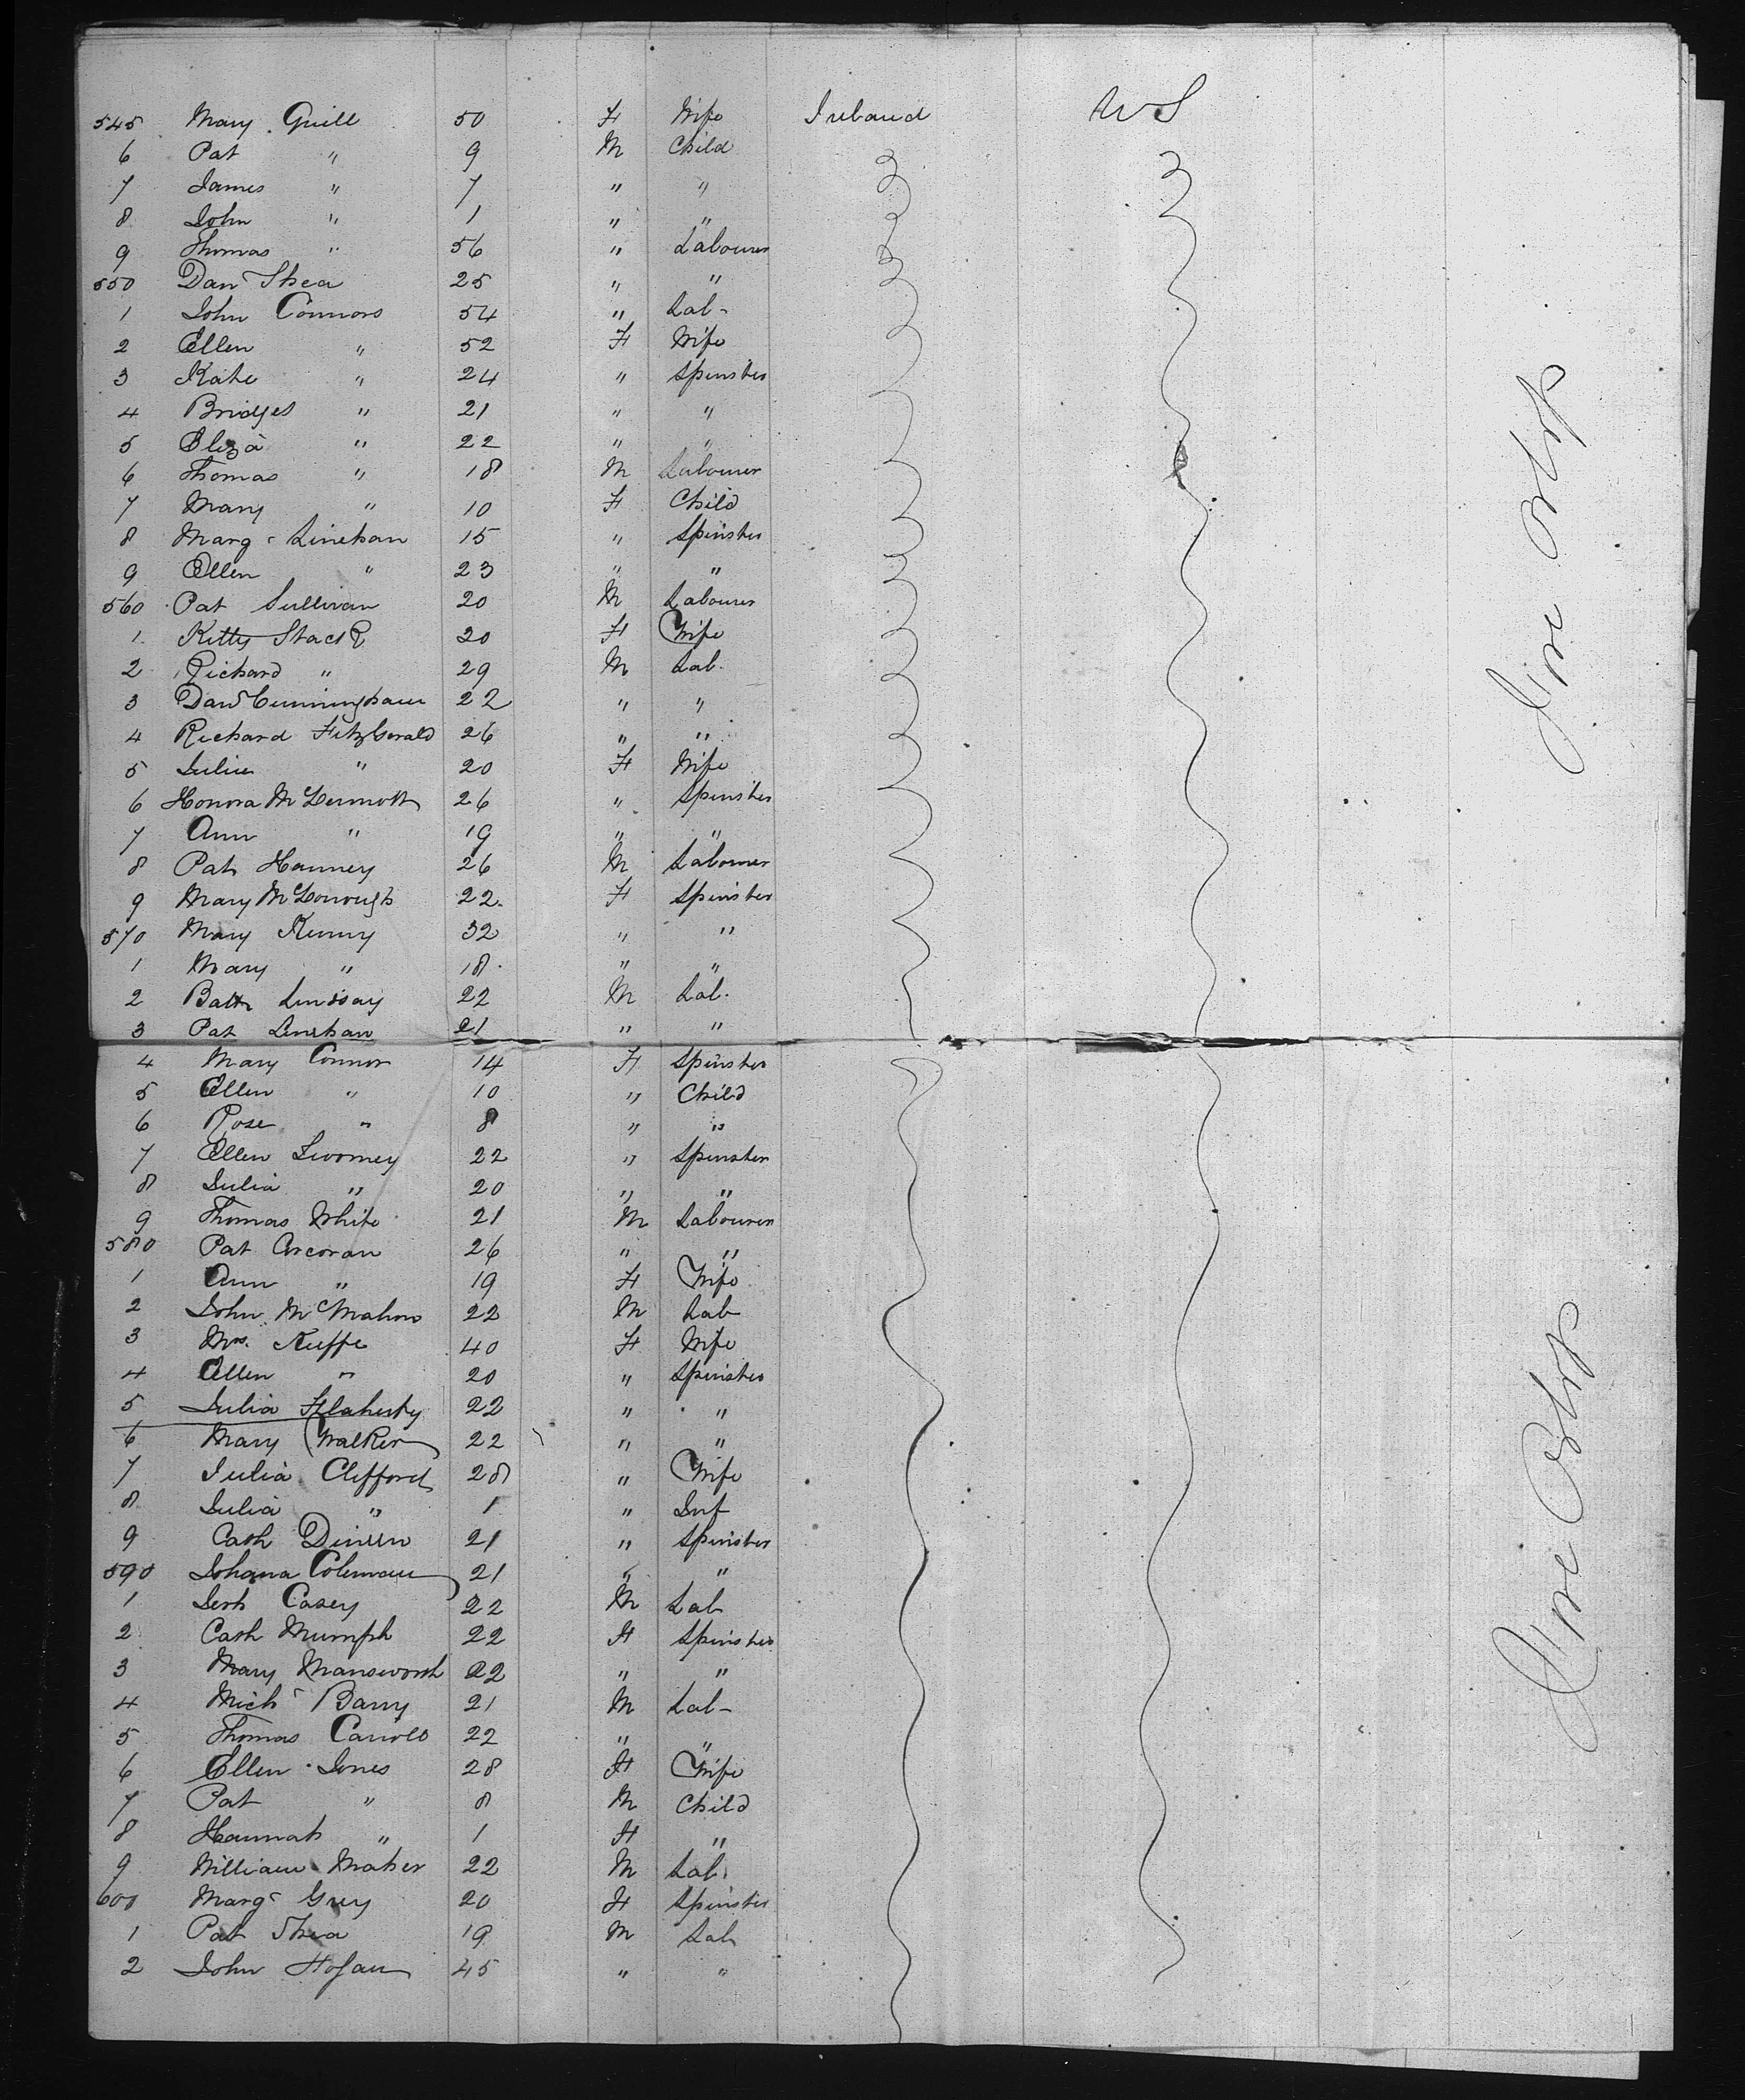 545 Mary Quill 50 F Wife Ireland US
6 Pat " 9 M Child
7 James " 7 " "
8 John " 1 " "
9 Thomas " 56 " Labourer
550 Dan Shea 25 " "
1 John Connors 54 " Lab-
2 Ellen " 52 F Wife
3 Kate " 24 " Spinster
4 Bridget " 21 " "
5 Eliza " 22 " "
6 Thomas " 18 M Labourer
7 Mary " 10 F Child
8 Marg Linehan 15 " Spinster
9 Ellen " 23 " "
560 Pat Sullivan 20 M Labourer
1 Kitty Stack 20 F Wife
2 Richard " 29 M Lab.
3 Dan Cunningham 22 " "
4 Richard FitzGerald 26 " "
5 Julia " 20 F Wife
6 Honora McDermott 26 " Spinster
7 Ann " 19 " "
8 Pat Hanney 26 M Labourer
9 Mary McDonough 22 F Spinster
570 Mary Kenny 32 " "
1 Mary " 18 " "
2 Batt Lindsay 22 M Lab.
3 Pat Linehan 21 " "
4 Mary Connor 14 F Spinster
5 Ellen " 10 " Child
6 Rose " 8 " "
7 Ellen Twomey 22 " Spinster
8 Julia " 20 " "
9 Thomas White 21 M Labourer
580 Pat Corcoran 26 " "
1 Ann " 19 F Wife
2 John McMahon 22 M Lab
3 Mrs. Keeffe 40 F Wife
4 Ellen " 20 " Spinster
5 Julia Flaherty 22 " "
6 Mary Walker 22 " "
7 Julia Clifford 28 " Wife
8 Julia " 1 " Inf
9 Cath Dineen 21 " Spinster
590 Johana Coleman 21 " "
1 Jerh Casey 22 M Lab
2 Cath Mumph 22 F Spinster
3 Mary Mansworth 22 " "
4 Mich Barry 21 M Lab-
5 Thomas Carroll 22 " "
6 Ellen Jones 28 F Wife
7 Pat " 8 M Child
8 Hannah " 1 F "
9 William Maher 22 M Lab.
600 Marg Grey 20 F Spinster
1 Pat Shea 19 M Lab
2 John Hogan 45 " "